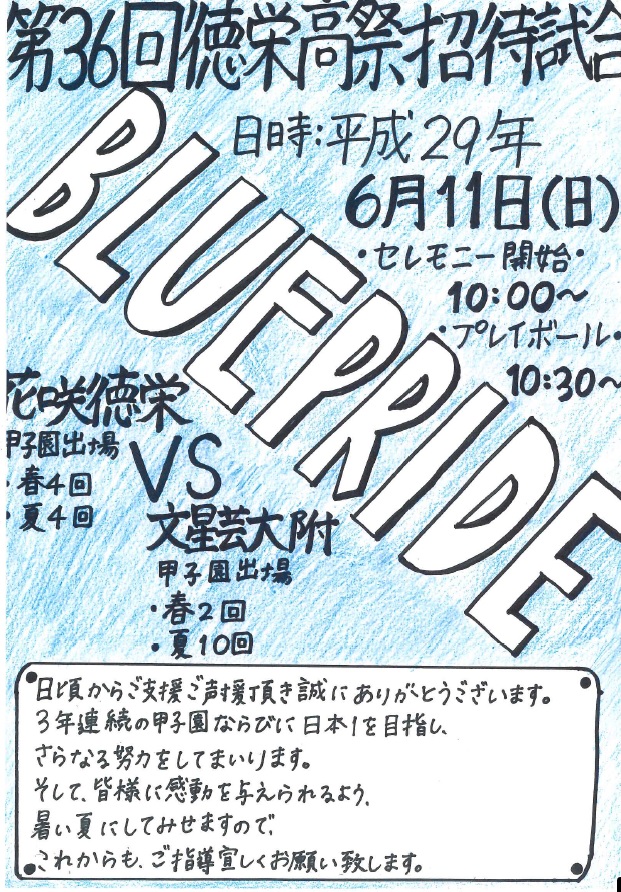 第36回徳栄高祭招待試合
BLUEPRIDE
日時:平成29年
6月11日(日)
・セレモニー開始・
10:00~
・プレイボール・
10:30~
花咲徳栄
甲子園出場
・春4回
・夏4回
VS
文星芸大附
甲子園出場
・春2回
・夏10回
日頃からご支援ご声援頂き誠にありがとうございます。
3年連続の甲子園ならびに日本1を目指し、
さらなる努力をしてまいります。
そして、皆様に感動を与えられるよう、
暑い夏にしてみせますので、
これからも、ご指導宜しくお願い致します。